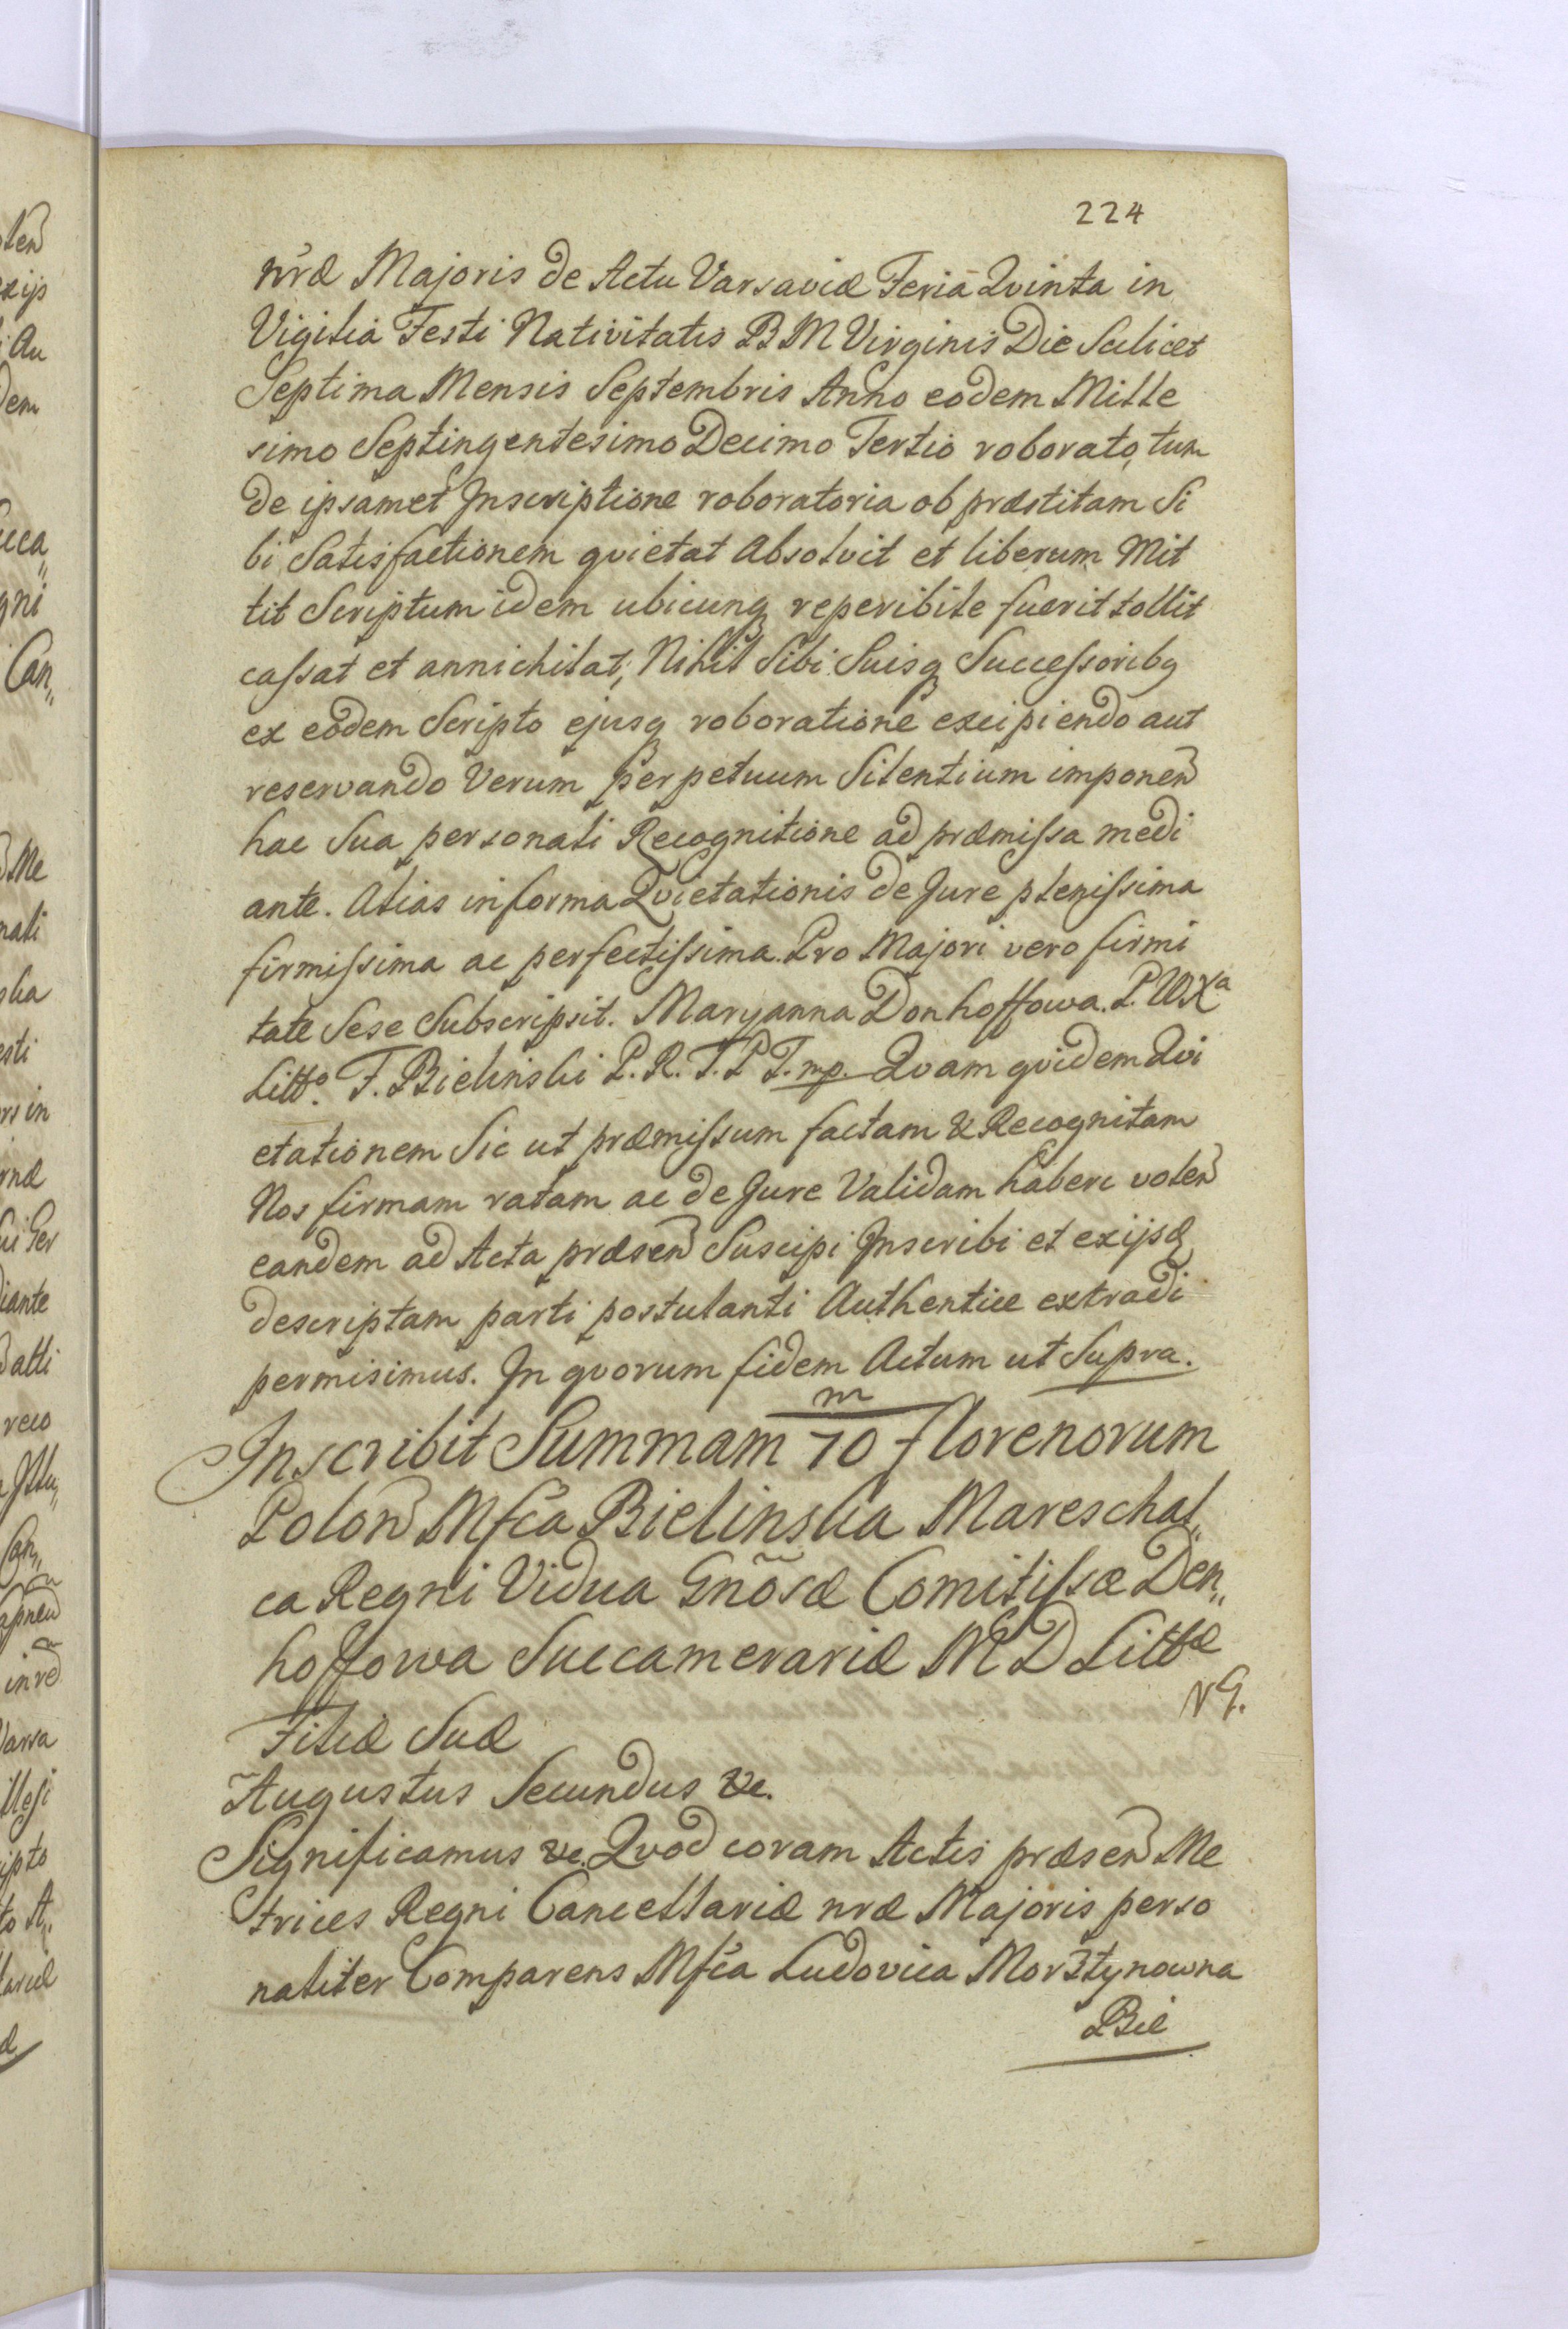 224
nræ Majoris de Actu Varsaviæ Feria Qvinta in
Vigilia Festi Nativitatis B M Virginis Die Scilicet
Septima Mensis Septembris Anno eodem Mille
simo Septingentesimo Decimo Tertio roborato, tum
de ipsamet Inscriptione roboratoria ob præstitam Si
bi Satisfactionem qvietat Absolvit et liberum Mit
tit Scriptum idem ubicunq reperibile fuerit tollit
caſsat et annichilat; Nihil Sibi Suisq Succeſsoribq
ex eodem Scripto ejusq roboratione excipiendo aut
reservando Verum perpetuum Silentium imponen
hac Sua personali Recognitione ad præmiſsa medi
ante. Alias in forma Qvietationis de Jure pleniſsima
firmiſsima ac perfectiſsima. Pro Majori vero firmi
tate Sese Subscripsit. Maryanna Donhoffowa. P. W X a
Litto. F. Bielinski P. R. T. P T. mp. Qvam qvidem Qvi
etationem Sic ut præmiſsum factam & Recognitam
Nos firmam ratam ac de Jure Validam habere volen
eandem ad Acta præsen Suscipi Inscribi et exijsq
descriptam parti postulanti Authentice extradi
permisimus. In qvorum fidem Actum ut Supra.
Inscribit Summam 70 m Florenorum
Polon Mfca Bielinska Mareschal„
ca Regni Vidua Gnosæ Comitiſsæ Den„
hoffowa Succamerariæ M D Littæ
NG.
Filiæ Suæ
Augustus Secundus &c.
Significamus &c. Qvod coram Actis præsen Me
trices Regni Cancellariæ nræ Majoris perso
naliter Comparens Mfca Ludovica Morsztynowna
Bie